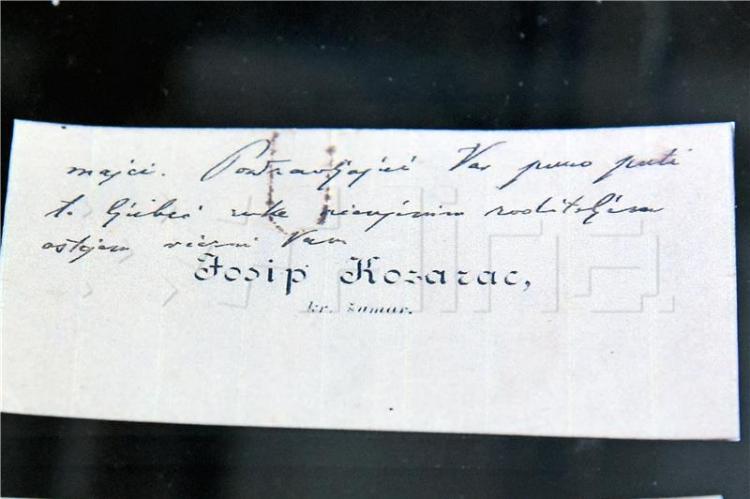 majci. Pozdravljajuć Vas puno puti
i ljubeć ruke roditeljima
ostajem Vam
Josip Kozarac,
kr. šumar.